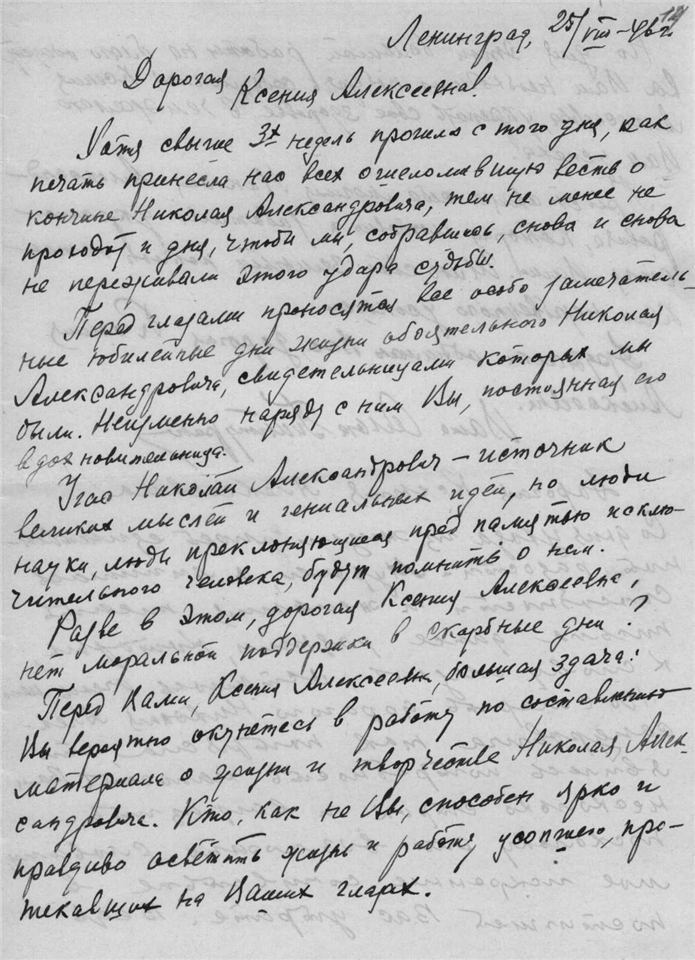 12
Ленинград, 25/VIII-46 г.
Дорогая
Ксения Алексеевна!
Хотя свыше 3х недель прошло с того дня, как
печать принесла нас всех ошеломившую весть о
кончине Николая Александровича, тем не менее не
проходит и дня, чтобы мы, собравшись, снова и снова
не переживали этого удара судьбы.
Перед глазами проносятся все особо замечатель-
ные юбилейные дни жизни обаятельного Николая
Александровича, свидетельницами которых мы
были. Неизменно наряду с ним Вы, постоянная его
вдохновительница.
Угас Николай Александрович – источник
великих мыслей и гениальных идей, но люди
науки, люди преклоняющиеся пред памятью исклю-
чительного человека, будут помнить о нем.
Разве в этом, дорогая Ксения Алексеевна,
нет моральной поддержки в скорбные дни?
Перед Вами, Ксения Алексеевна, большая здача:
Вы вероятно окунетесь в работу по составлению
материала о жизни и творчестве Николая Алек-
сандровича. Кто, как не Вы, способен ярко и
правдиво осветить жизнь и работу усопшего, про-
текавших на Ваших глазах.